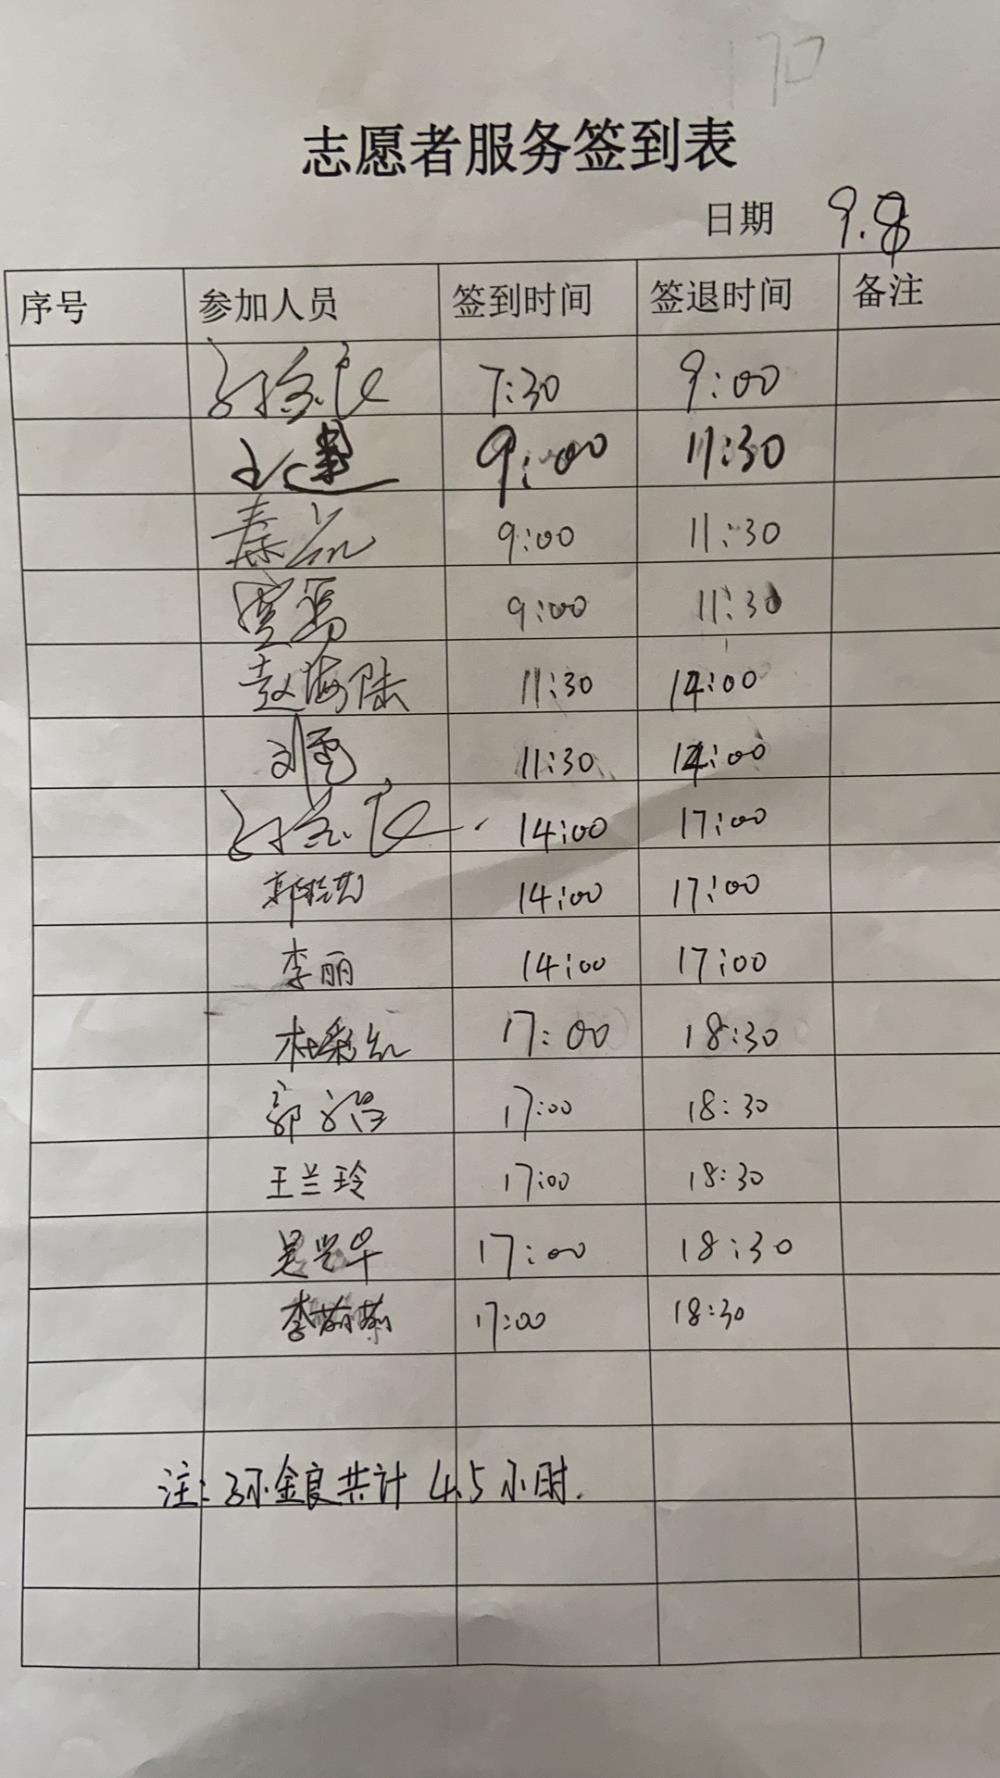 170
志愿者服务签到表
日期 9.8
序号 参加人员 签到时间 签退时间 备注
孙金良 7:30 9:00
王建 9:00 11:30
秦 9:00 11:30
9:00 11:30
赵海陆 11:30 14:00
刘 11:30 14:00
孙金良 14:00 17:00
郭 14:00 17:00
李丽 14:00 17:00
杜彩红 17:00 18:30
郭 17:00 18:30
王兰玲 17:00 18:30
吴兴华 17:00 18:30
李莉莉 17:00 18:30
注:孙金良共计 4.5小时.